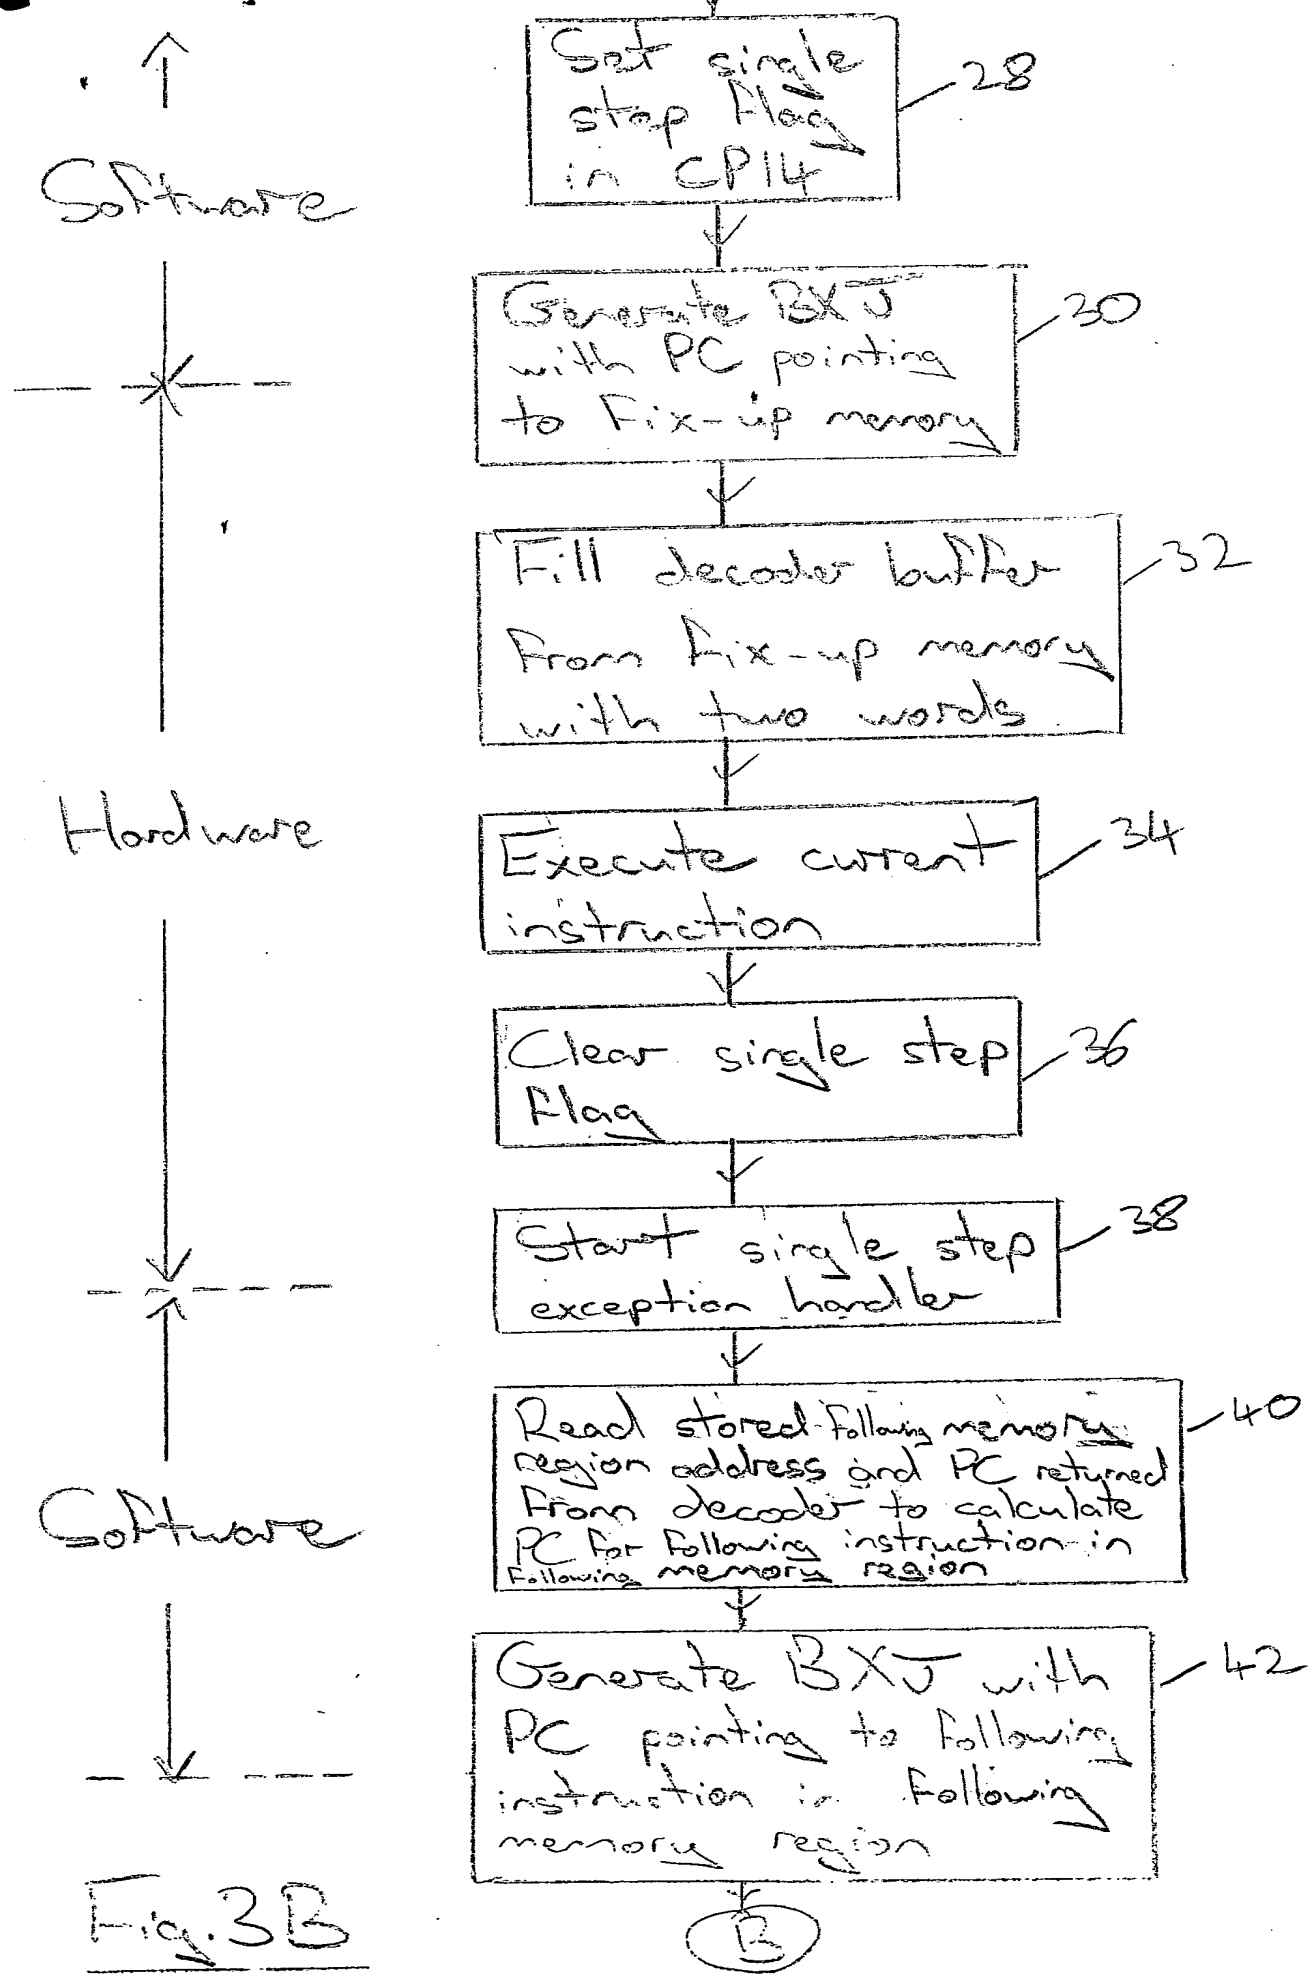 Set single
step flag
in CP14
28
Software
Generate BXJ
with PC pointing
to fix-up memory
30
Fill decoder buffer
from fix-up memory
with two words
32
Hardware
Execute current
instruction
34
Clear single step
flag
36
Start single step
exception handler
38
Read stored following memory
region address and PC returned
from decoder to calculate
PC for following instruction in
following memory region
40
Software
Generate BXJ with
PC pointing to following
instruction in following
memory region
42
Fig. 3B
B